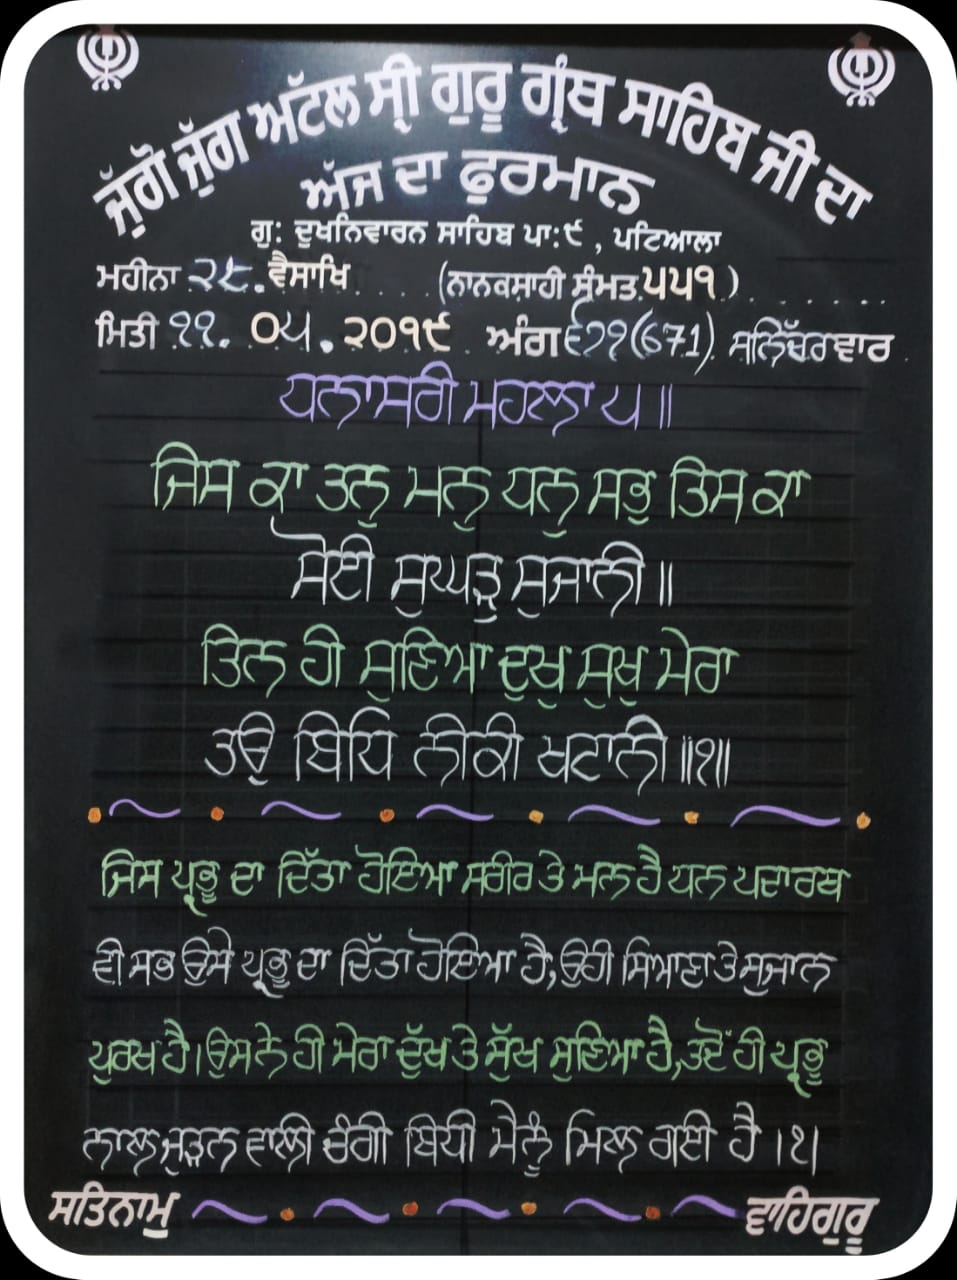 ਜੁੱਗੋ ਜੁੱਗ ਅਟੱਲ ਸ੍ਰੀ ਗੁਰੂ ਗ੍ਰੰਥ ਸਾਹਿਬ ਜੀ ਦਾ
ਅੱਜ ਦਾ ਫੁਰਮਾਨ
ਗੁ: ਦੁਖਨਿਵਾਰਨ ਸਾਹਿਬ ਪਾ:੯, ਪਟਿਆਲਾ
ਮਹੀਨਾ ੨੮. ਵੈਸਾਖਿ (ਨਾਨਕਸਾਹੀ ਸੰਮਤ ੫੫੧)
ਮਿਤੀ ੧੧. ੦੫. ੨੦੧੯ ਅੰਗ ੬੭੧(671) ਸਨਿੱਚਰਵਾਰ
ਧਨਾਸਰੀ ਮਹਲਾ ੫ ॥
ਜਿਸ ਕਾ ਤਨੁ ਮਨੁ ਧਨੁ ਸਭੁ ਤਿਸ ਕਾ
ਸੋਈ ਸੁਘੜੁ ਸੁਜਾਨੀ ॥
ਤਿਨ ਹੀ ਸੁਣਿਆ ਦੁਖੁ ਸੁਖੁ ਮੇਰਾ
ਤਉ ਬਿਧਿ ਨੀਕੀ ਖਟਾਨੀ ॥੧॥
ਜਿਸ ਪ੍ਰਭੂ ਦਾ ਦਿੱਤਾ ਹੋਇਆ ਸਰੀਰ ਤੇ ਮਨ ਹੈ ਧਨ ਪਦਾਰਥ
ਵੀ ਸਭ ਉਸੇ ਪ੍ਰਭੂ ਦਾ ਦਿੱਤਾ ਹੋਇਆ ਹੈ, ਉਹੀ ਸਿਆਣਾ ਤੇ ਸੁਜਾਨ
ਪੁਰਖ ਹੈ। ਉਸਨੇ ਹੀ ਮੇਰਾ ਦੁੱਖ ਤੇ ਸੁੱਖ ਸੁਣਿਆ ਹੈ, ਤਦੋਂ ਹੀ ਪ੍ਰਭੂ
ਨਾਲ ਜੁੜਨ ਵਾਲੀ ਚੰਗੀ ਬਿਧੀ ਮੈਨੂੰ ਮਿਲ ਗਈ ਹੈ ।੧।
ਸਤਿਨਾਮੁ ਵਾਹਿਗੁਰੂ